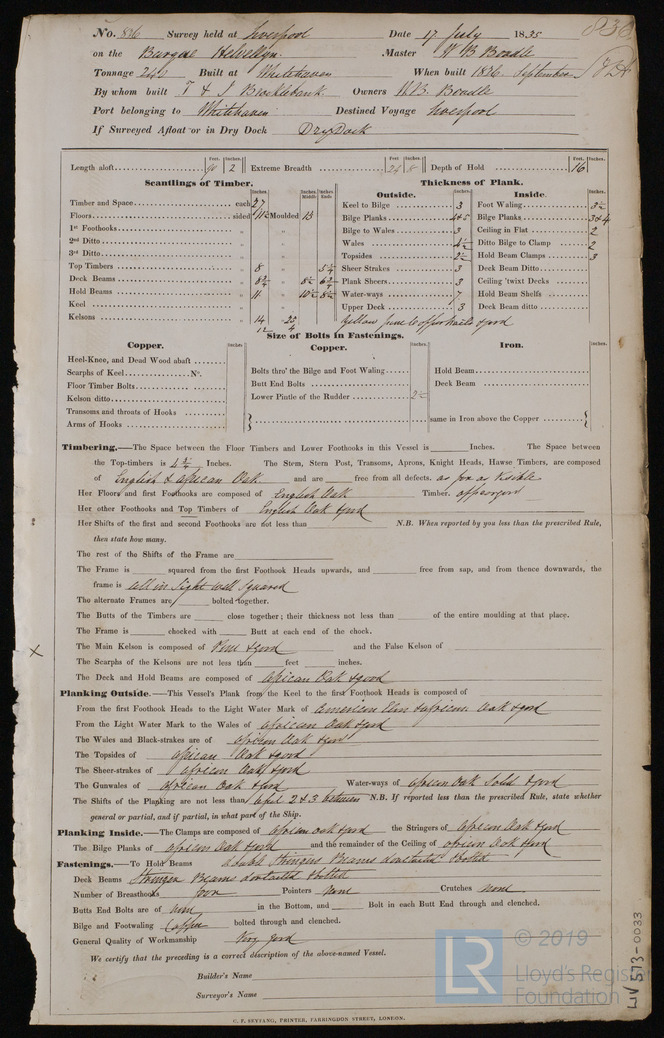 No. 836 Survey held at Liverpool Date 17 July 1835
on the Barque Helvellyn. Master W B Boadle
Tonnage 240 Built at Whitehaven When built 1826. September
By whom built T & J Brocklebank. Owners W.B. Boadle
Port belonging to Whitehaven Destined Voyage Liverpool
If Surveyed Afloat or in Dry Dock Dry Dock
Length aloft Feet. 90 Inches. 2 Extreme Breadth Feet. 24 Inches. 8 Depth of Hold Feet. 16 Inches.
Scantlings of Timber. Thickness of Plank.
Outside. Inside.
Timber and Space each 27 Keel to Bilge 3 Foot Waling 3½
Floors sided 11½ Moulded 13 Bilge Planks 4&5 Bilge Planks 3&4
1st Foothooks Bilge to Wales 3 Ceiling in Flat 2
2nd Ditto Wales 4½ Ditto Bilge to Clamp 2
3rd Ditto Topsides 2½ Hold Beam Clamps 3
Top Timbers 8 5¼ Sheer Strakes 3 Deck Beam Ditto
Deck Beams 8¾ 8½ 6¾ Plank Sheers 3 Ceiling 'twixt Decks
Hold Beams 11 10½ 8½ Water-ways 7 Hold Beam Shelfs
Keel Upper Deck 3 Deck Beam ditto
Kelsons 14 25
12 4
Size of Bolts in Fastenings.
Copper. Copper. Iron.
Heel-Knee, and Dead Wood abaft
Scarphs of Keel No. Bolts thro' the Bilge and Foot Waling Hold Beam
Floor Timber Bolts Butt End Bolts Deck Beam
Kelson ditto Lower Pintle of the Rudder 2½
Transoms and throats of Hooks
Arms of Hooks same in Iron above the Copper
Timbering.—The Space between the Floor Timbers and Lower Foothooks in this Vessel is Inches. The Space between
the Top-timbers is 4¾ Inches. The Stem, Stern Post, Transoms, Aprons, Knight Heads, Hawse Timbers, are composed
of English & African Oak. and are free from all defects. as far as visible
Her Floors and first Foothooks are composed of English Oak Timber.
Her other Foothooks and Top Timbers of English Oak & good
Her Shifts of the first and second Foothooks are not less than N.B. When reported by you less than the prescribed Rule,
then state how many.
The rest of the Shifts of the Frame are
The Frame is squared from the first Foothook Heads upwards, and free from sap, and from thence downwards, the
frame is all in sight well squared
The alternate Frames are bolted together.
The Butts of the Timbers are close together; their thickness not less than of the entire moulding at that place.
The Frame is chocked with Butt at each end of the chock.
The Main Kelson is composed of Pine & good and the False Kelson of
The Scarphs of the Kelsons are not less than feet inches.
The Deck and Hold Beams are composed of African Oak & good
Planking Outside.—This Vessel's Plank from the Keel to the first Foothook Heads is composed of
From the first Foothook Heads to the Light Water Mark of American Elm & African Oak & good
From the Light Water Mark to the Wales of African Oak & good
The Wales and Black-strakes are of African Oak & good
The Topsides of African Oak & good
The Sheer-strakes of African Oak & good
The Gunwales of African Oak & good Water-ways of African Oak Solid & good
The Shifts of the Planking are not less than 2 & 3 between N.B. If reported less than the prescribed Rule, state whether
general or partial, and if partial, in what part of the Ship.
Planking Inside.—The Clamps are composed of African oak & good the Stringers of African Oak & good
The Bilge Planks of African Oak & good and the remainder of the Ceiling of African Oak & good
Fastenings.—To Hold Beams double Stringers Beams dovetailed & bolted
Deck Beams Stringer Beams dovetailed & bolted
Number of Breasthooks four Pointers None Crutches none
Butts End Bolts are of in the Bottom, and Bolt in each Butt End through and clenched.
Bilge and Footwaling Copper bolted through and clenched.
General Quality of Workmanship Very good
We certify that the preceding is a correct description of the above-named Vessel.
Builder's Name
Surveyor's Name
C. F. SEYFANG, PRINTER, FARRINGDON STREET, LONDON.
LR © 2019
Lloyd's Register
Foundation
LIV 573-0033